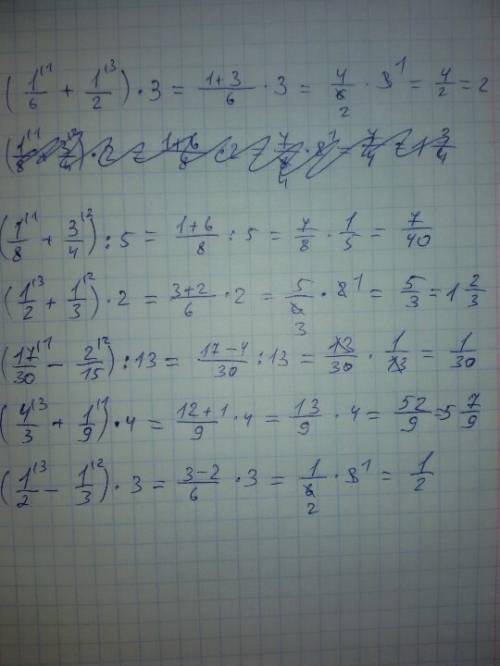 (1/6^{(1} + 1/2^{(3}) · 3 = (1+3)/6 · 3 = 4/6 2 · 3^1 = 4/2 = 2
(1/8^{(1} + 3/4^{(2}) · 2 = (1+6)/8 · 2 = 7/8 4 · 2^1 = 7/4 = 1 3/4
(1/8^{(1} + 3/4^{(2}) : 5 = (1+6)/8 : 5 = 7/8 · 1/5 = 7/40
(1/2^{(3} + 1/3^{(2}) · 2 = (3+2)/6 · 2 = 5/6 3 · 2^1 = 5/3 = 1 2/3
(17/30^{(1} - 2/15^{(2}) : 13 = (17-4)/30 : 13 = 13/30 · 1/13 = 1/30
(4/3^{(3} + 1/9^{(1}) · 4 = (12+1)/9 · 4 = 13/9 · 4 = 52/9 = 5 7/9
(1/2^{(3} - 1/3^{(2}) · 3 = (3-2)/6 · 3 = 1/6 2 · 3^1 = 1/2